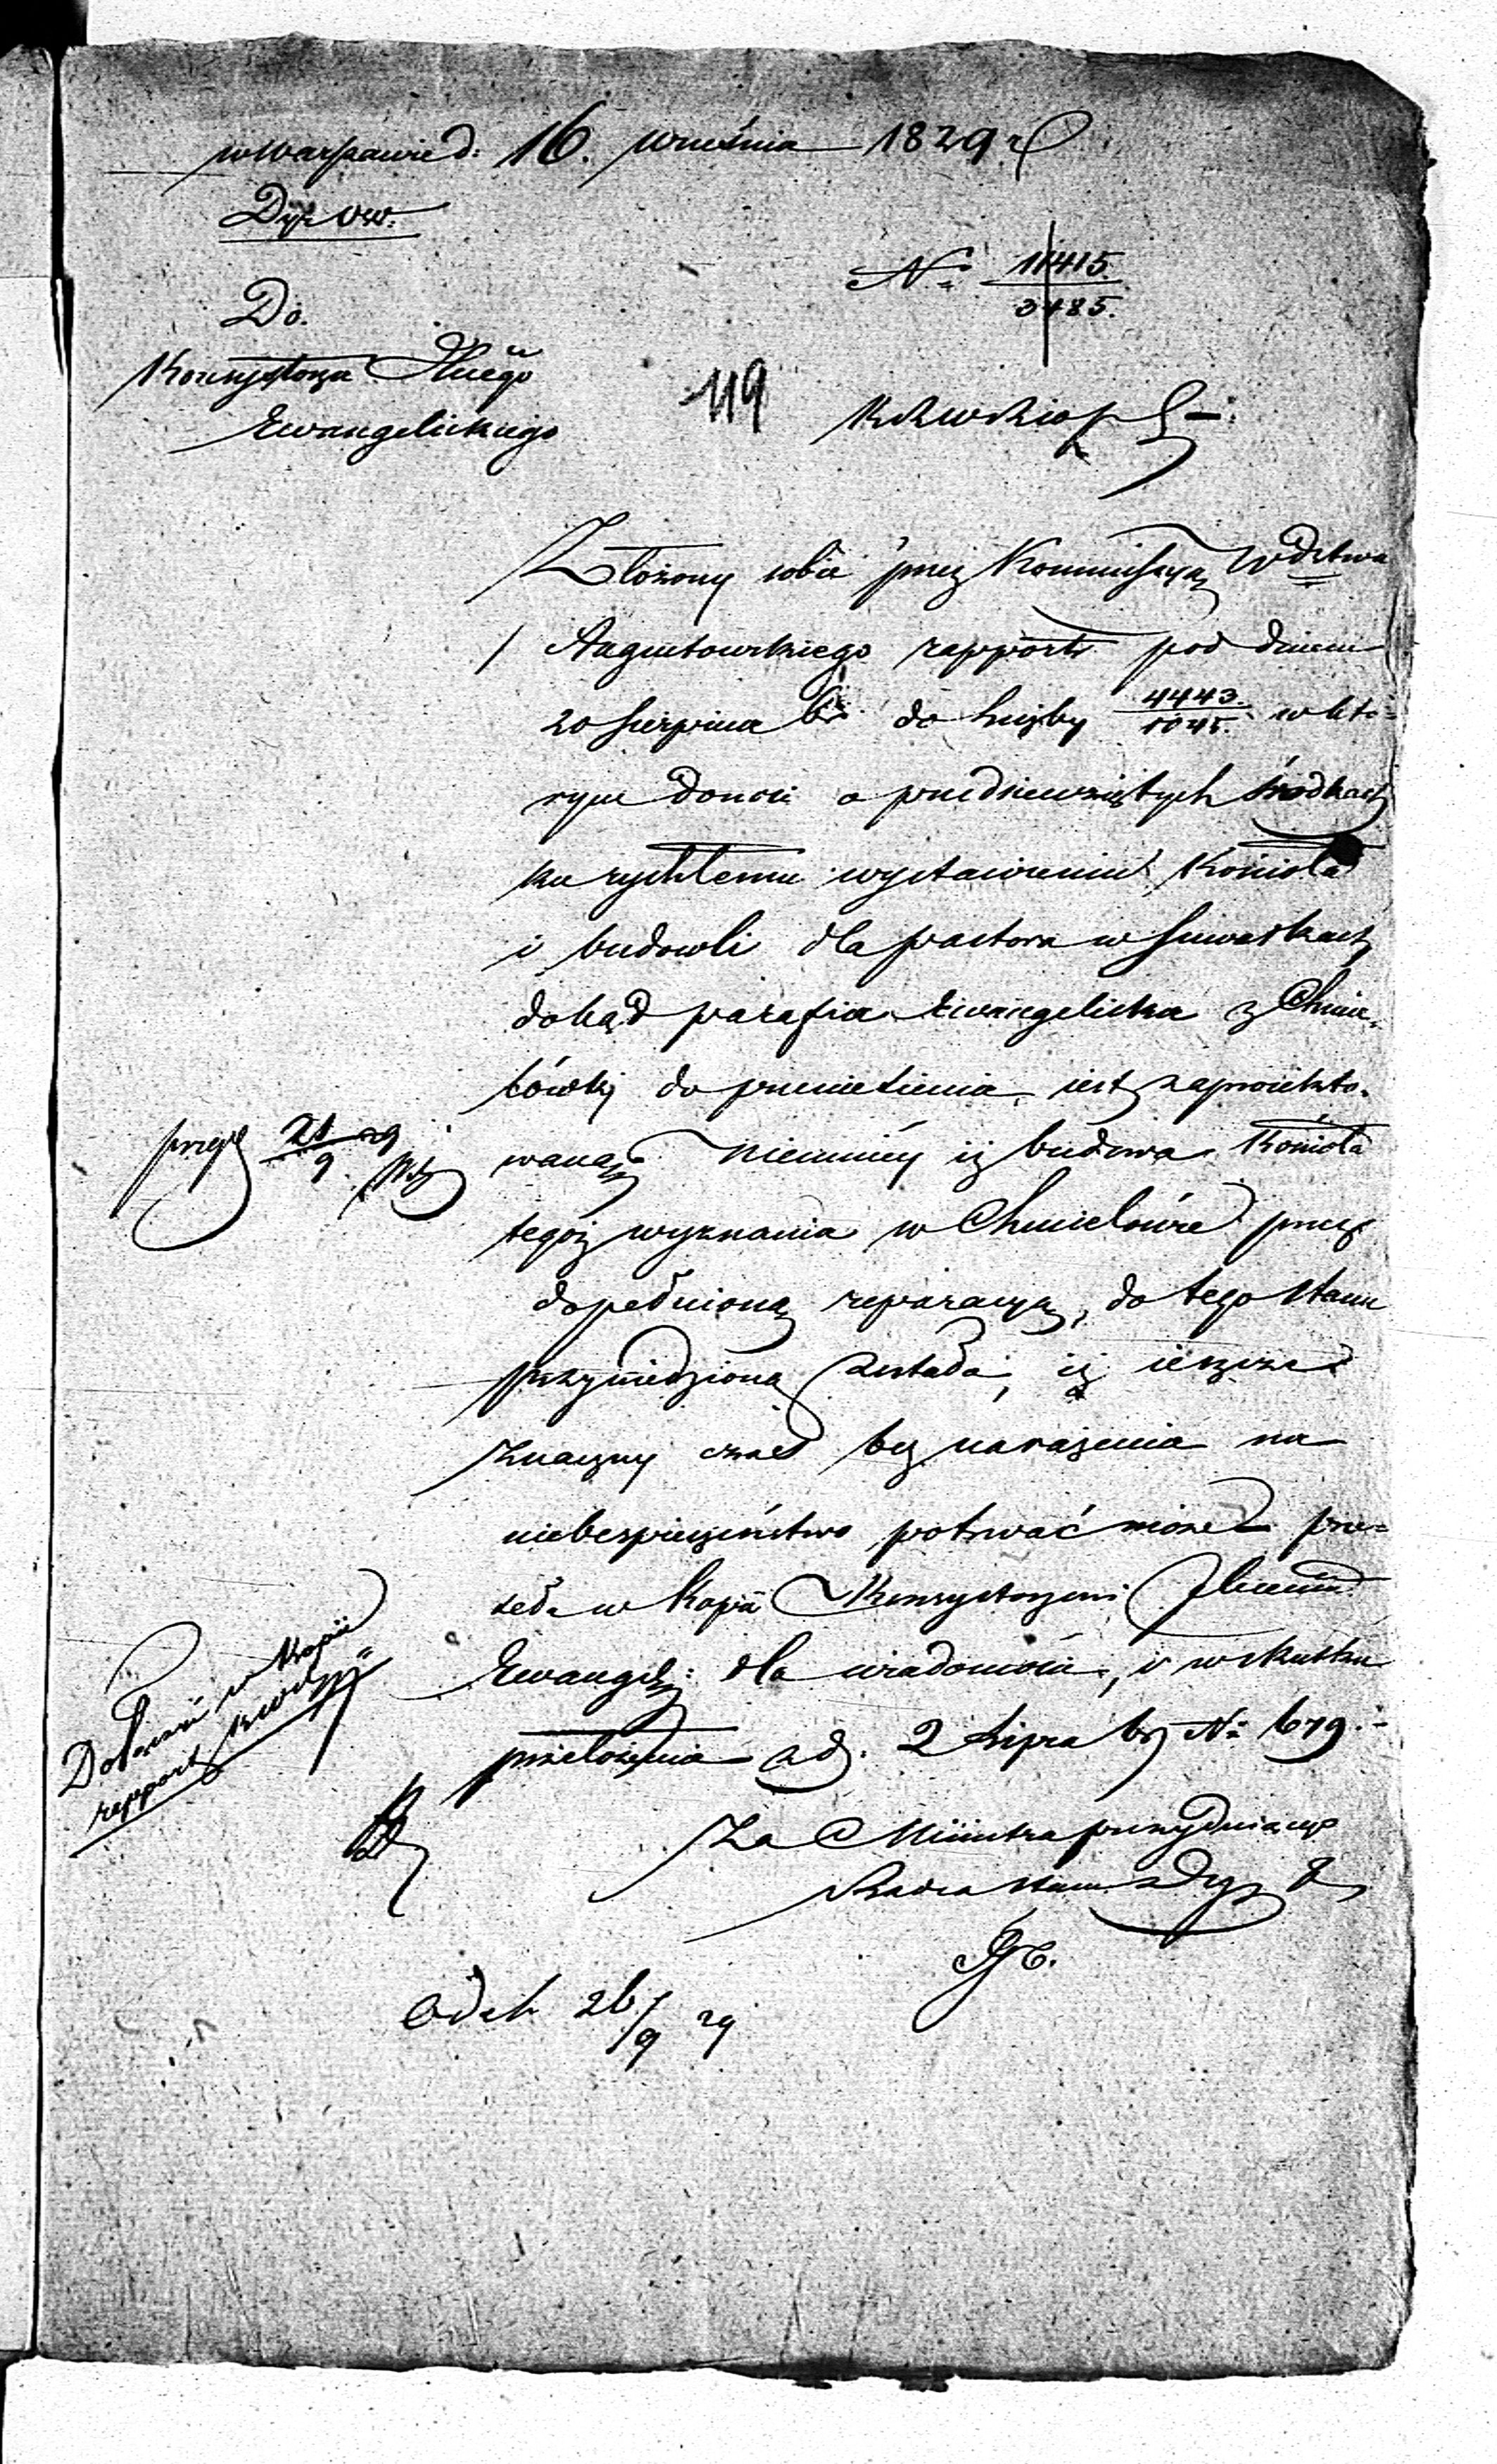 w Warszawie d: 16. września 1829 r
Dyr WW.
Do.
Konsystorza Jlnego
Ewangelickiego
No 11415.
3485.
119
Złożony sobie przez Kommissyą Wdztwa
Augustowskiego rapport pod dniem
20 sierpnia br do liczby 4443.
1045. w któ=
rym donosi o przedsięwziętych środkach
ku rychłemu wystawieniu Kościoła
i budowli dla pastora w Suwałkach
dokąd parafia Ewangelicka z Chmie-
lówki do przeniesienia iest zaproiekto-
waną niemniéy iż budowa Kościoła
tegoż wyznania w Chmielówce przez
dopełnioną reparacyą, do tego stanu
przywiedzioną została, iż ieszcze
znaczny czas bez narażenia na
niebespieczeństwo potrwać może prze=
seła w kopii Konsystorzowi Jlnemu
Ewangel: dla wiadomości, i w skutku
przełożenia z d. 2 Lipca br No 679.
Za Ministra prezyduiącego
Radca Stanu Dyr J
21/9 29
Dołączyć w kopii
rapport
Odeb 26/9 29